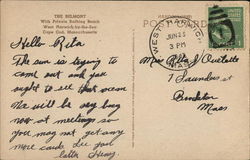 THE BELMONT
With Private Bathing Beach
West Harwich-by-the-Sea
Cape Cod, Massachusetts
POST CARD
WEST HARWICH
JUN 25
3 PM
MASS
Hello Rita
The sun is trying to
come out and you
ought to see that ocean
We will be very busy
now at meetings so
you may not get any
more cards. See you
later Henry.
Miss Rita Ouellette
7 Saunders st
Mass